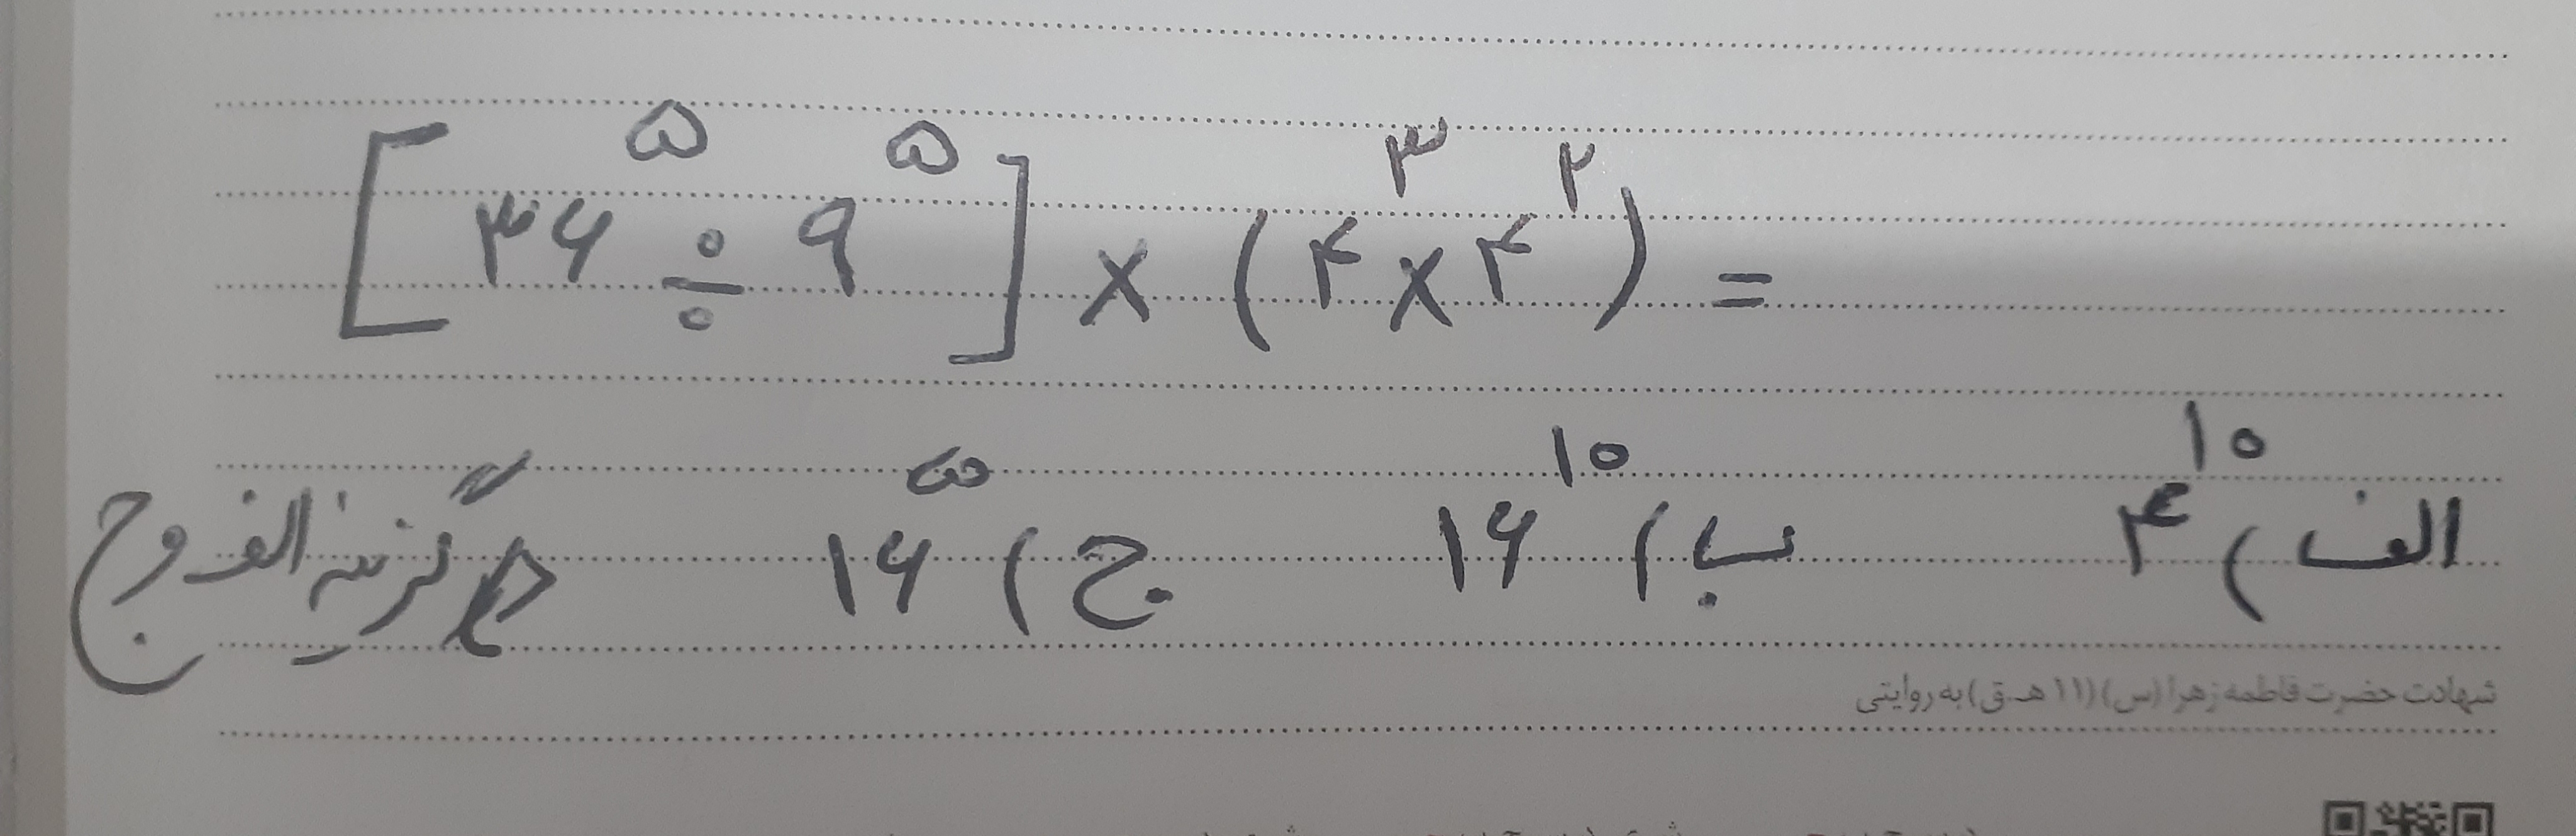 [۳۶^۵ ÷ ۹^۵] × (۴^۳ × ۴^۲) =
الف) ۴^۱۰ ب) ۱۶^۱۰ ج) ۱۶^۵ د) گزینه الف و ج
شهادت حضرت فاطمه زهرا (س) (۱۱ هـ.ق) به روایتی